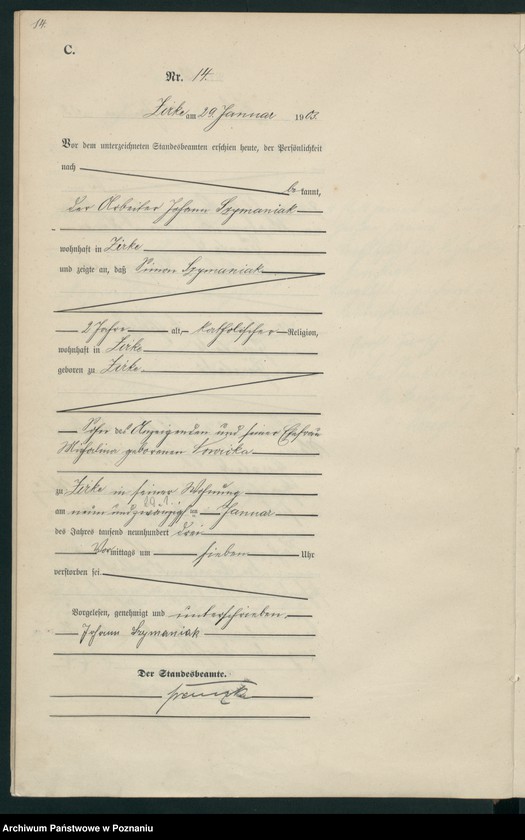 14.
C.
Nr. 14.
Zirke am 29. Januar 1903.
Vor dem unterzeichneten Standesbeamten erschien heute, der Persönlichkeit
nach
be kannt,
der Arbeiter Johann Szymaniak
wohnhaft in Zirke
und zeigte an, daß Simon Szymaniak
2 Jahre alt, katholischer Religion,
wohnhaft in Zirke
geboren zu Zirke
Sohn des Anzeigenden und seiner Ehefrau
Michalina geborenen
zu Zirke in seiner Wohnung
am neun und zwanzigsten Januar
des Jahres tausend neunhundert drei
Vormittags um sieben Uhr
verstorben sei.
Vorgelesen, genehmigt und unterschrieben.
Johann Szymaniak
Der Standesbeamte.
Archiwum Państwowe w Poznaniu